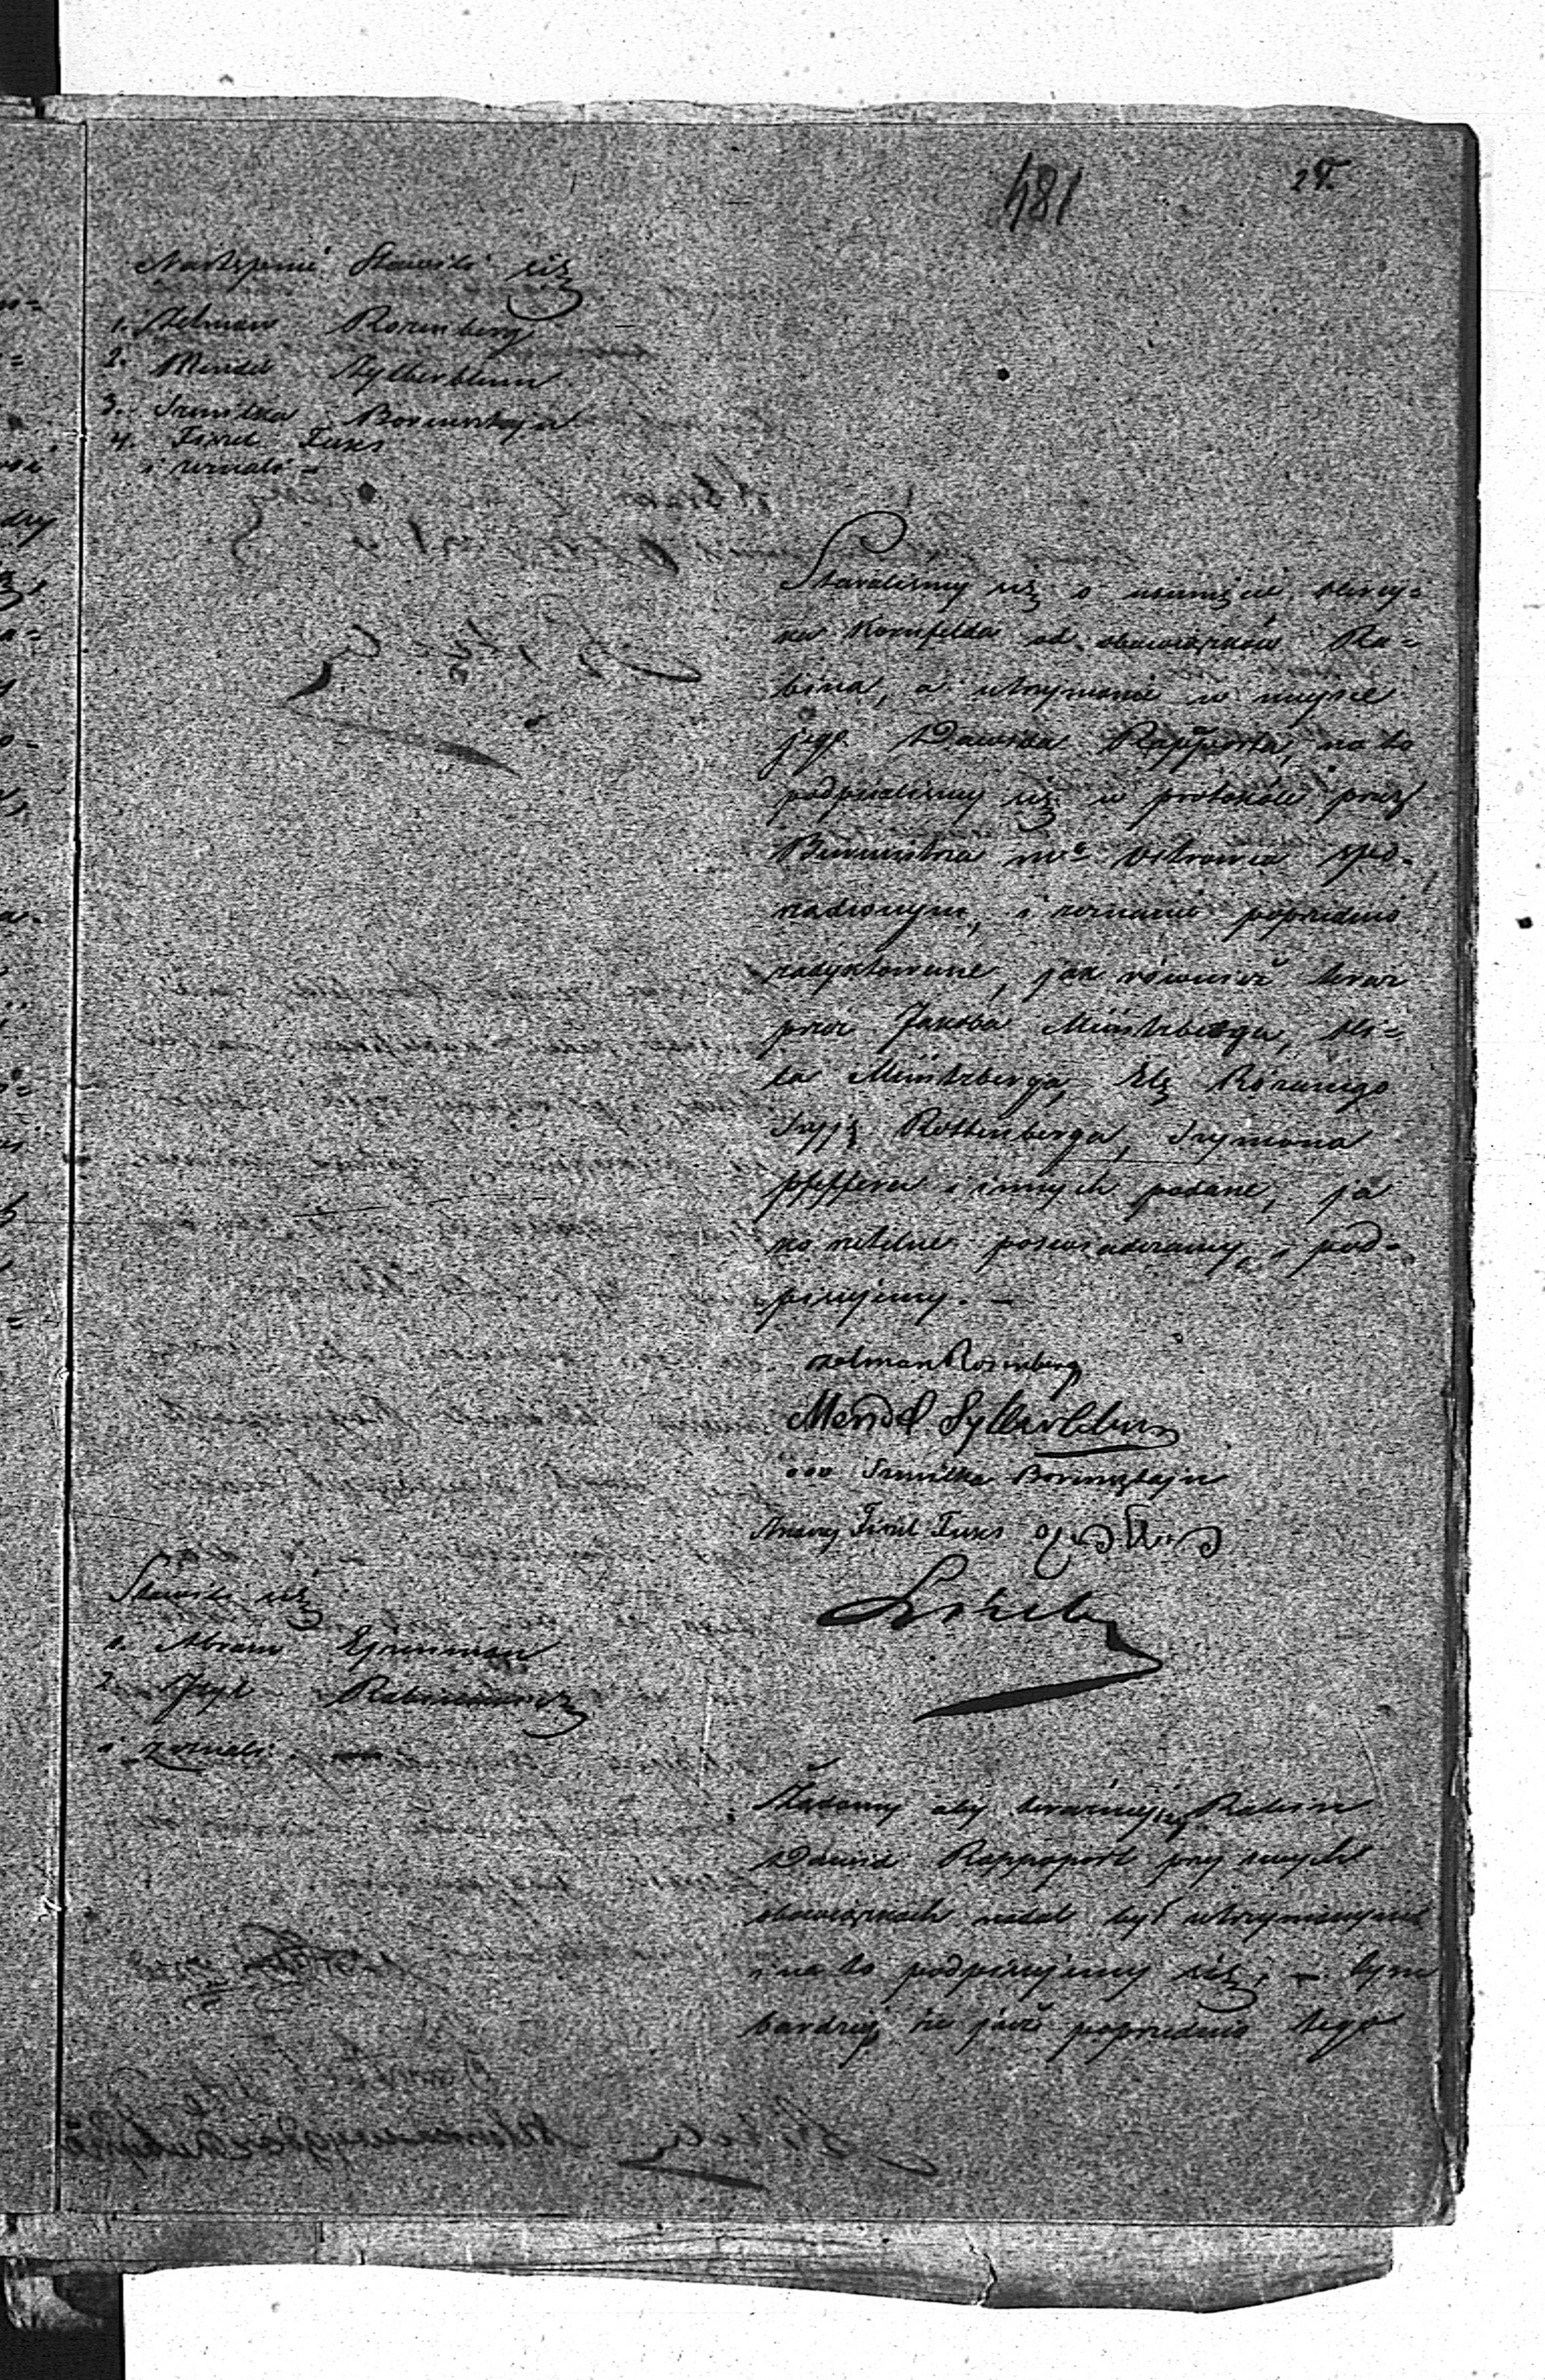 481
27.
Następnie Stawili się
1. Zelman Rozenberg
2. Mendel Zylberblum
3. Szmilka Borensztajn
4. Fiszel Fuks
i zeznali –
Staraliśmy się o usunięcie Hercy=
ka Kornfelda od obowiązków Ra=
bina, a utrzymanie w miejsce
jego Dawida Rappoporta, na to
podpisaliśmy się w protokóle przez
Burmistrza mta Ostrowca spo-
rządzonym, i zeznanie poprzednio
zadyktowane, jak również teraz
przez Jakóba Müntzberga, 
ta Müntzberga, Elę Różanego
Rottenberga, Szymona
Pfeffera i innych podane, ja
ko rzetelne poświadczamy, i pod=
pisujemy. –
Zelman Rosenberg
Mendel Sylberblum
ooo Szmilka Borensztajn
Znaczy Fiszel Fuks
Stawili się
1. Abram Ejzenman
2. Jcyk Rabinowicz
i zeznali –
Żądamy aby teraźniejszy Rabin
Dawid Rappoport przy swych
obowiązkach nadal był utrzymanym
i na to podpisujemy się, – tym
bardziej, że już poprzednio tego